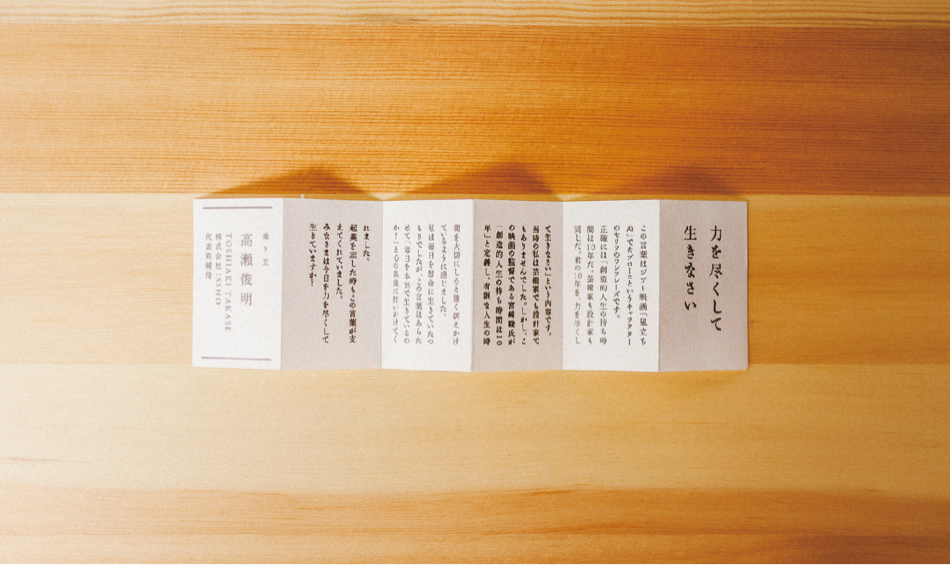 力を尽くして
生きなさい
この言葉はジブリ映画「風立ち
ぬ」でカプローニというキャラクター
のセリフのアンフレーズです。
正確には「創造的人生の持ち時
間は10年だ。芸術家も設計家も
同じだ。君の10年を、力を尽くし
て生きなさい」という内容です。
当時の私は芸術家でも設計家で
もありませんでした。しかし、こ
の映画の監督である宮崎駿氏が
「創造的人生の持ち時間は10
年」と定義し、有限な人生の時
間を大切にしろと強く訴えかけ
ているように感じました。
私は毎日を懸命に生きていたつ
もりでしたが、この言葉はあらた
めて、毎日を本気で生きているの
か？と心の真意に問いかけてく
れました。
起業を志した時もこの言葉が支
えてくれていました。
みなさまは今日を力を尽くして
生きていますか？
高瀬俊明
TOSHIAKI TAKASE
株式会社ISSHO
代表取締役